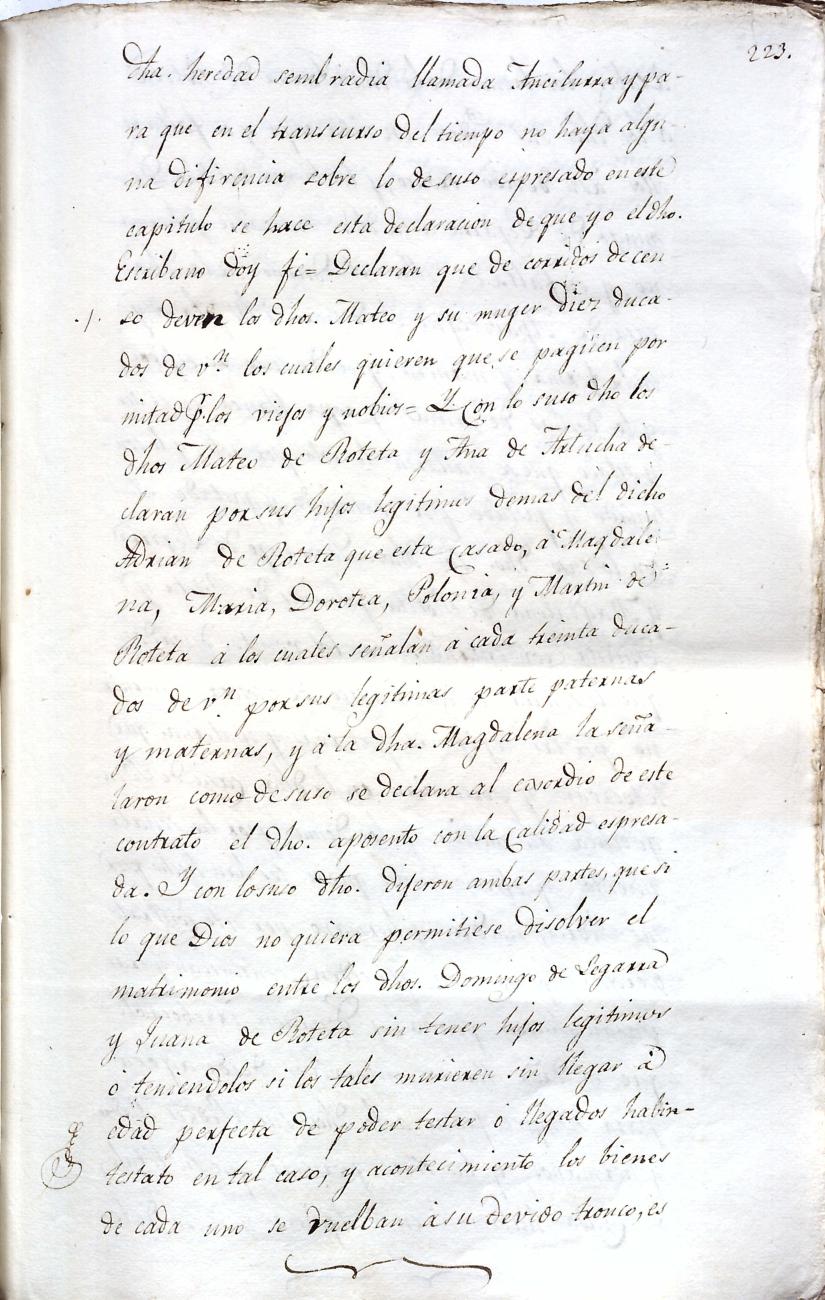 223.
dha. heredad sembradia llamada Ancilurra y pa-
ra que en el transcurso del tiempo no haya algu-
na difirencia sobre lo de suso espresado en este
capitulo se hace esta declaracion de que yo el dho.
Escribano doy fé= Declaran que de corridos de cen-
so deven los dhos. Mateo y su muger Diez duca-
dos de v.n los cuales quieren que se paguen por
mitad p.r los viejos y nobios= Y. Con lo suso dho los
dhos Mateo de Roteta y Ana de Artucha de-
claran por sus hijos legitimos demas del dicho
Adrian de Roteta que esta Casado, á Magdale-
na, Maria, Dorotea, Polonia, y Martin de
Roteta á los cuales señalan á cada treinta duca-
dos de v.n por sus legitimas parte paternas
y maternas, y á la dha. Magdalena la seña-
laron como de suso se declara al exordio de este
contrato el dho. aposento con la Calidad espresa-
da. Y con lo suso dho. dijeron ambas partes, que si
lo que Dios no quiera permitiese disolver el
matrimonio entre los dhos. Domingo de Legarra
y Juana de Roteta sin tener hijos legitimos
ó teniendolos si los tales murieren sin llegar á
edad perfecta de poder testar ó llegados habin-
testato en tal caso, y acontecimiento los bienes
de cada uno se vuelban á su devido tronco, es